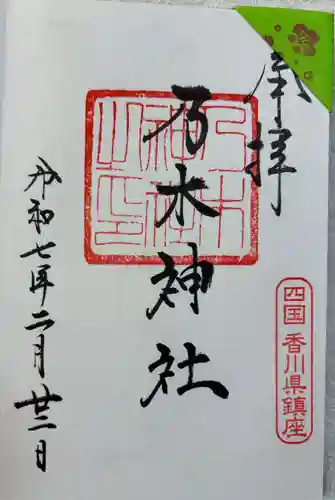 奉拝
乃木神社
乃木
神社
之印
四国 香川県鎮座
令和七年二月廿三日